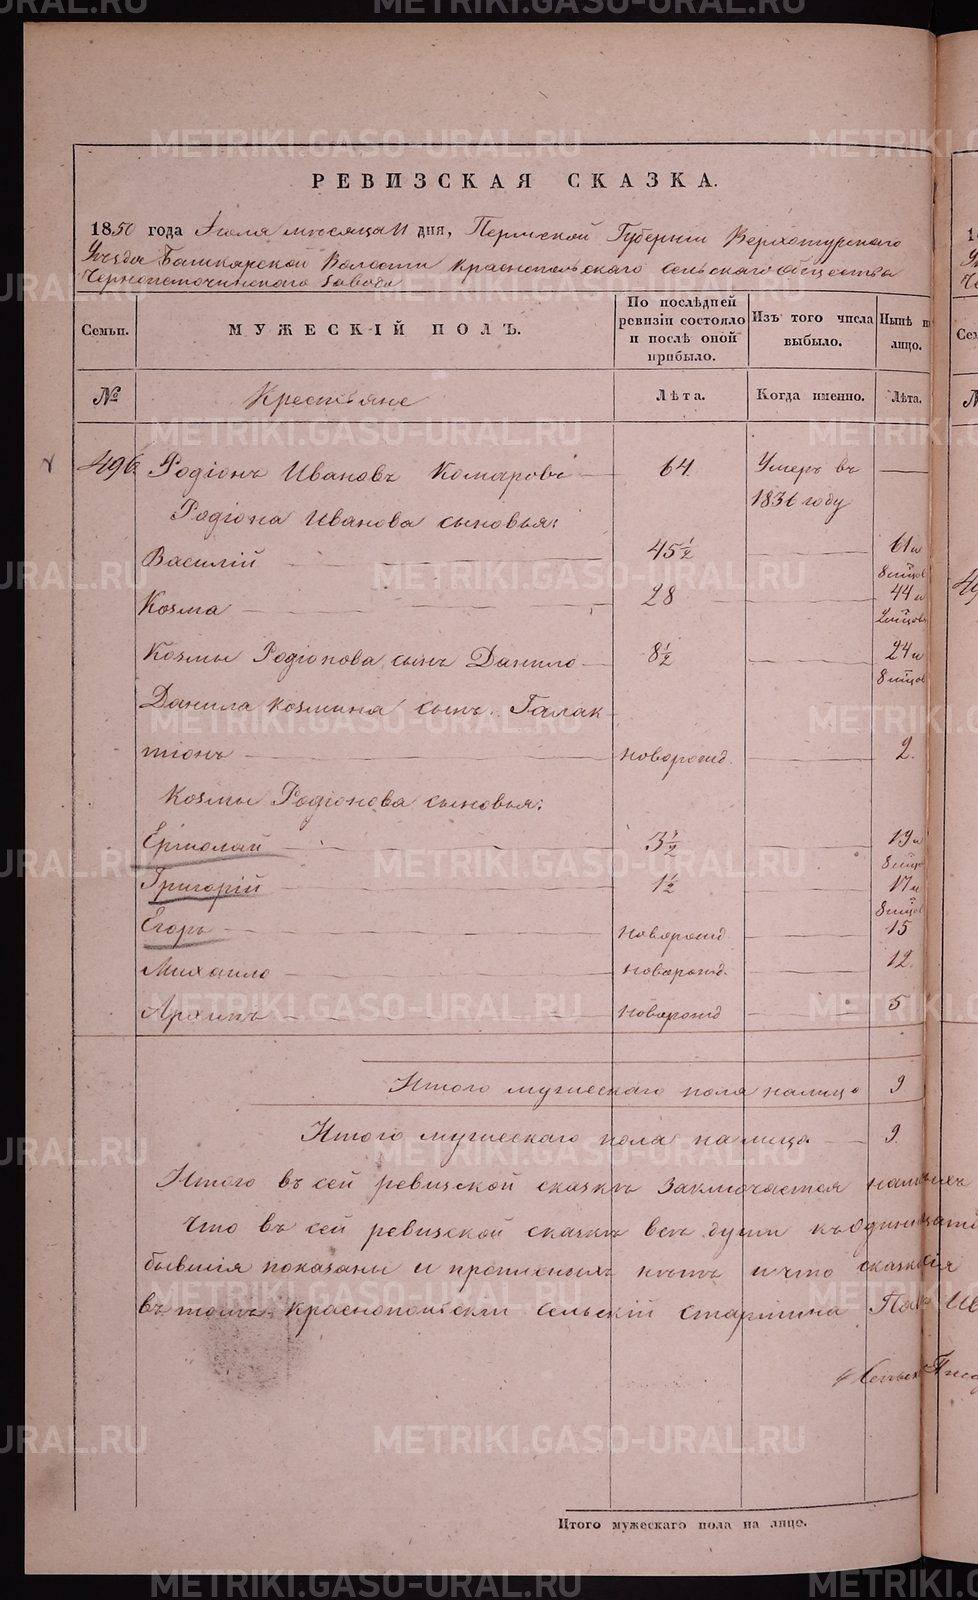 РЕВИЗСКАЯ СКАЗКА.
1850 года Июля месяца 11 дня, Пермской Губернии Верхотурского
Уезда Башкарской Волости Краснопольского Сельского Общества
Черноисточинского Завода
Семьи. МУЖЕСКІЙ ПОЛЪ. По послѣдней ревизіи состояло и послѣ оной прибыло. Изъ того числа выбыло. Нынѣ на лицо.
№ Крестьяне Лѣта. Когда именно. Лѣта.
496 Родіонъ Ивановъ Комаровъ 64 Умеръ въ
1836 году
Родіона Иванова сыновья:
Василій 45½ 61 и
8 мѣсцов
Козма 28 44 и
2 мѣсцов
Козмы Родіонова сынъ Данило 8½ 24 и
8 мѣсцов
Данила Козмина сынъ Галак
тіонъ новорожд. 2.
Козмы Родіонова сыновья:
Ермолай 3½ 19 и
8 мѣсц
Григорій 1½ 17 и
8 мѣсцов
Егоръ новорожд 15
Михаило новорожд. 12.
Архипъ новорожд 5
Итого мужескаго пола налицо 9
Итого мужескаго пола на лицо 9.
Итого въ сей ревизской сказкѣ заключается
Что въ сей ревизской сказкѣ всѣ души къ
бывшія показаны и прописныхъ нѣтъ и что
въ томъ Краснопольскій Сельскій Старшина
Итого мужескаго пола на лице.
METRIKI.GASO-URAL.RU